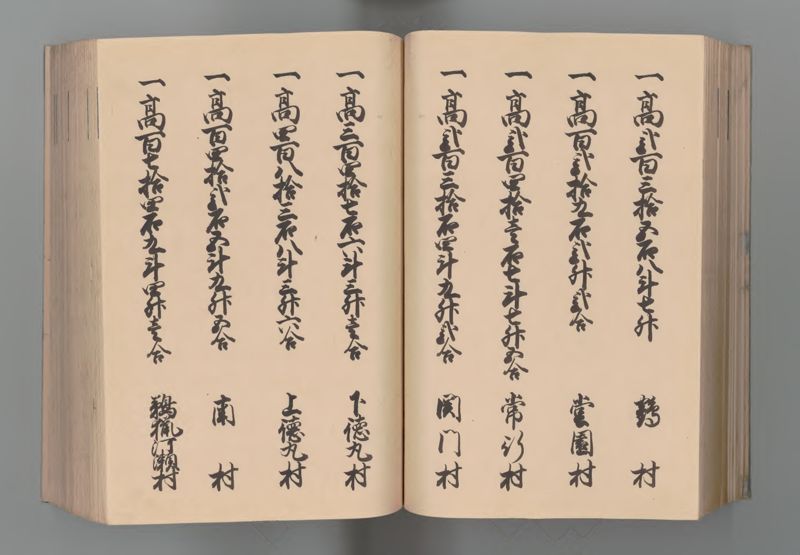 一高弐百三拾五石八斗七升 鞘村
一高百弐拾九石弐升弐合 堂園村
一高弐百四拾壱石七斗七升五合 常行村
一高弐百三拾石四斗九升弐合 関門村
一高三百四拾七石六斗三升壱合 下徳丸村
一高四百八拾三石八斗三升六合 上徳丸村
一高百四拾弐石五斗九升五合 南村
一高百七拾四石九斗四升壱合 鵜猟河瀬村